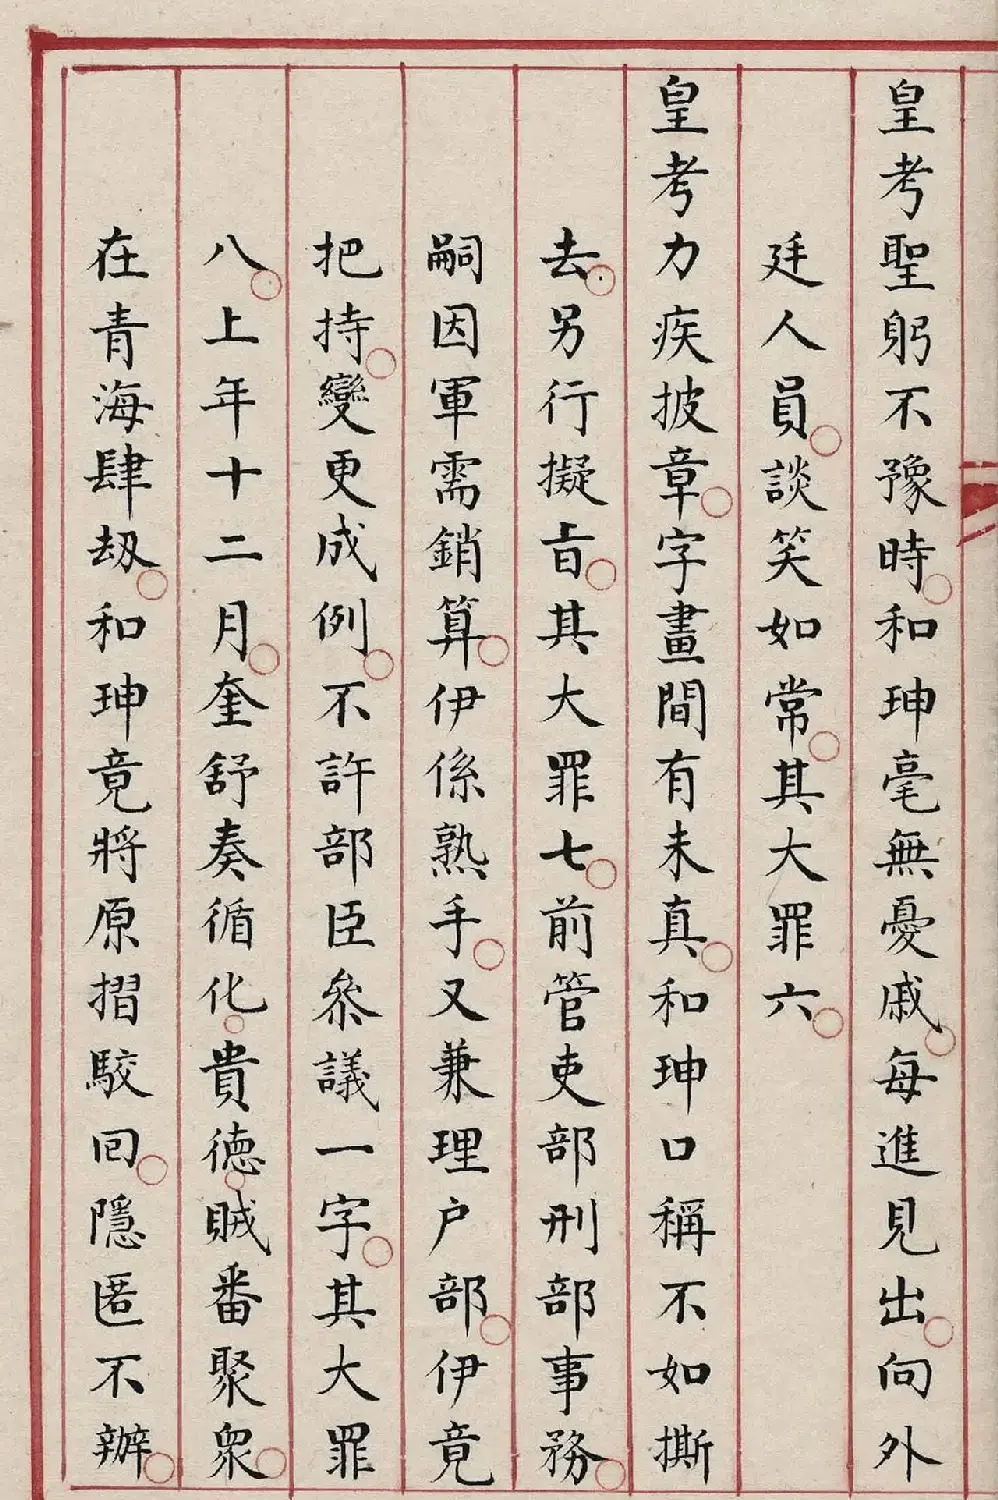 皇考聖躬不豫時和珅毫無憂戚每進見出向外
廷人員談笑如常其大罪六
皇考力疾披章字畫間有未真和珅口稱不如撕
去另行擬旨其大罪七前管吏部刑部事務
嗣因軍需銷算伊係熟手又兼理户部伊竟
把持變更成例不許部臣叅議一字其大罪
八上年十二月奎舒奏循化貴德賊番聚衆
在青海肆刼和珅竟將原摺駮回隱匿不辦